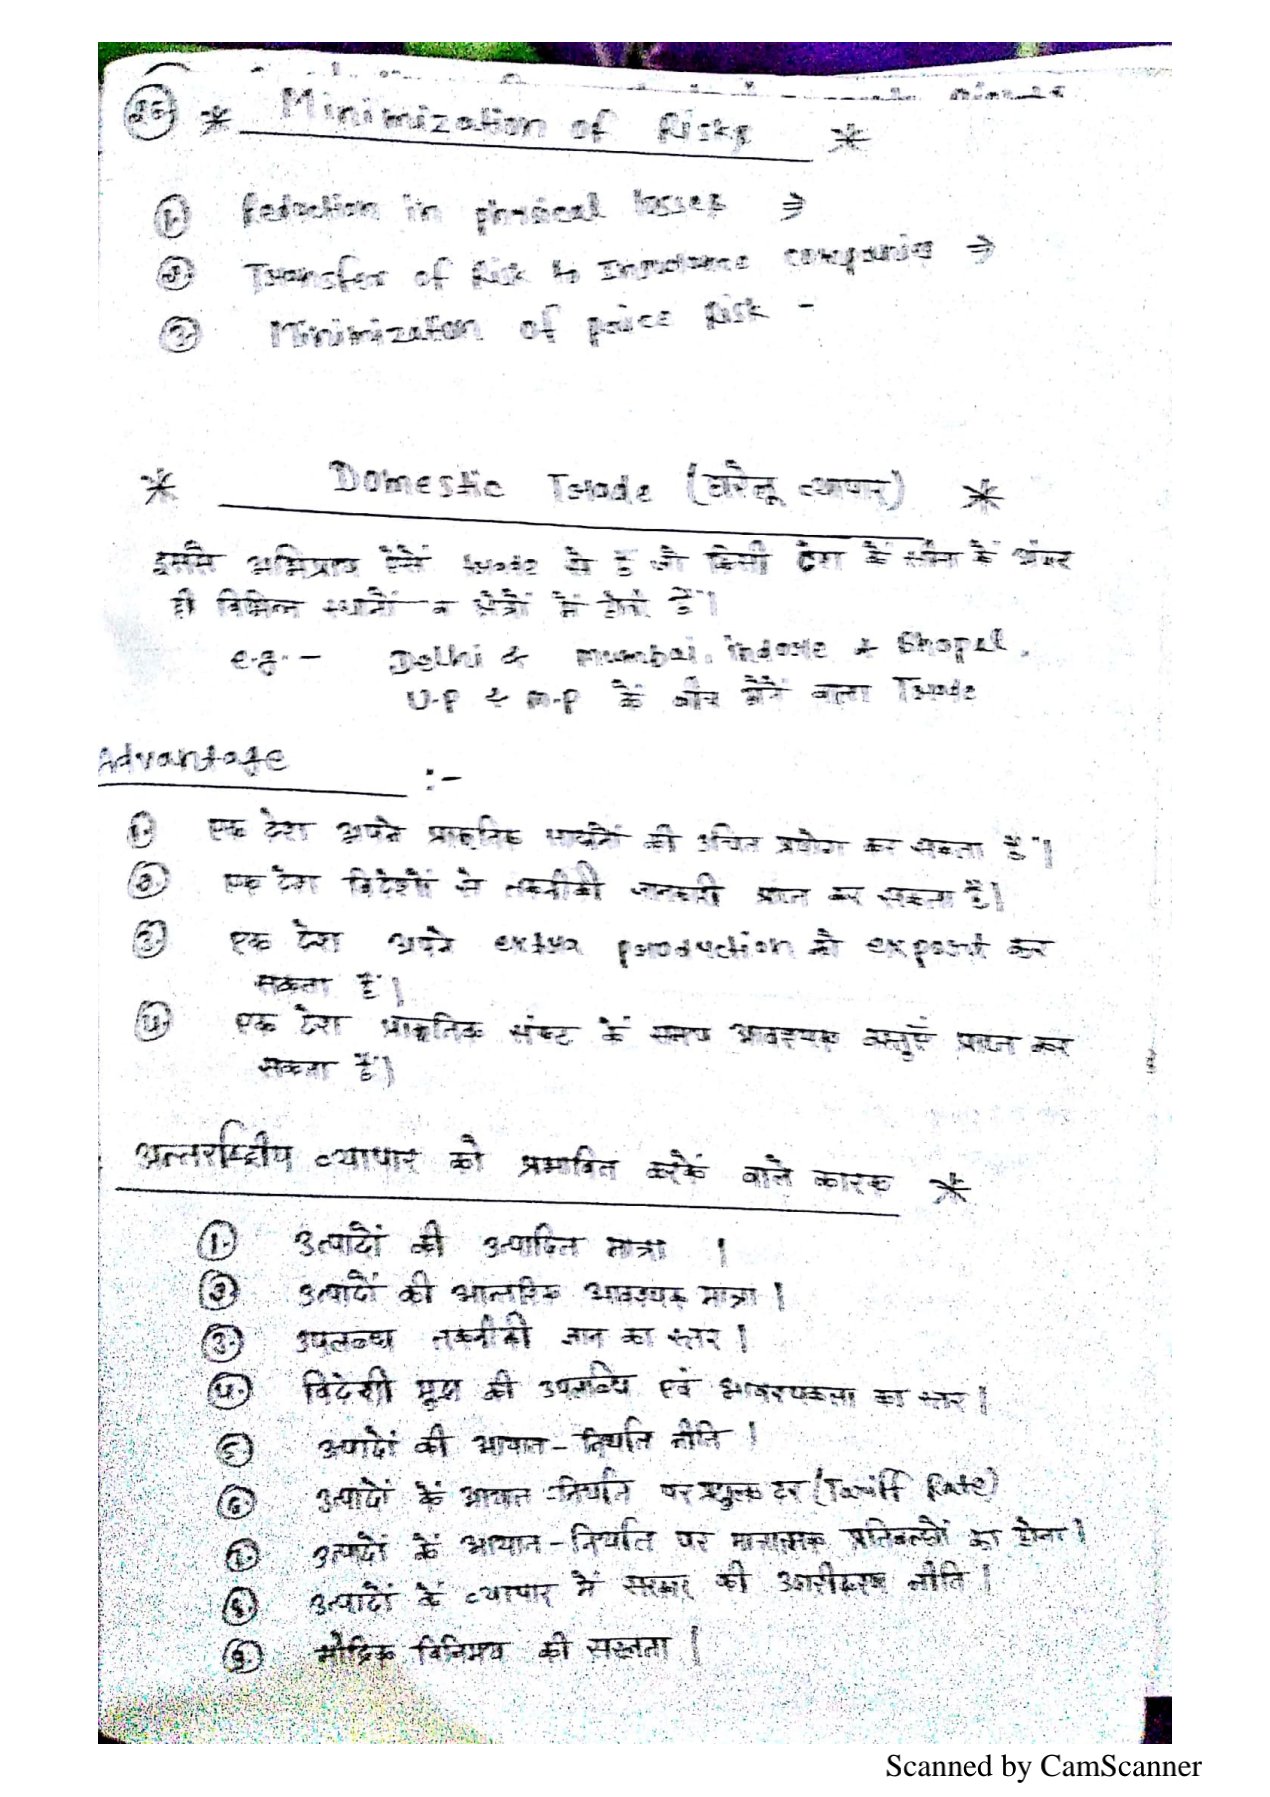 26 * Minimization of Risks *
1. Reduction in physical losses ⇒
2. Transfer of Risk to Insurance companies ⇒
3. Minimization of price Risk -
* Domestic Trade (घरेलू व्यापार) *
इससे अभिप्राय ऐसें trade से हैं जो किसी देश के सीमा के अंदर
ही विभिन्न स्थानों व क्षेत्रों में होता हैं।
e.g. - Delhi & Mumbai, indore & Bhopal,
U.P & M.P कें बीच होनें वाला Trade
Advantage :-
1. एक देश अपने प्राकृतिक साधनों की उचित प्रयोग कर सकता हैं।
2. एक देश विदेशों से तकनीकी जानकारी प्राप्त कर सकता हैं।
3. एक देश अपने extra production को export कर
सकता हैं।
4. एक देश प्राकृतिक संकट कें समय आवश्यक वस्तुएँ प्राप्त कर
सकता हैं।
अन्तर्राष्ट्रीय व्यापार को प्रभावित करकें वाले कारक *
1. उत्पादों की उत्पादित मात्रा ।
2. उत्पादों की आन्तरिक आवश्यक मात्रा ।
3. उपलब्ध तकनीकी ज्ञान का स्तर ।
4. विदेशी मुद्रा की उपलब्धि एवं आवश्यकता का स्तर ।
5. उत्पादों की आयात - निर्यात नीति ।
6. उत्पादों कें आयात - निर्यात पर प्रयुक्त दर (Tariff Rate)
7. उत्पादों कें आयात - निर्यात पर मात्रात्मक प्रतिबन्धों का होना ।
8. उत्पादों कें व्यापार में सरकार की उदारीकरण नीति ।
9. मौद्रिक विनिमय की सरलता ।
Scanned by CamScanner